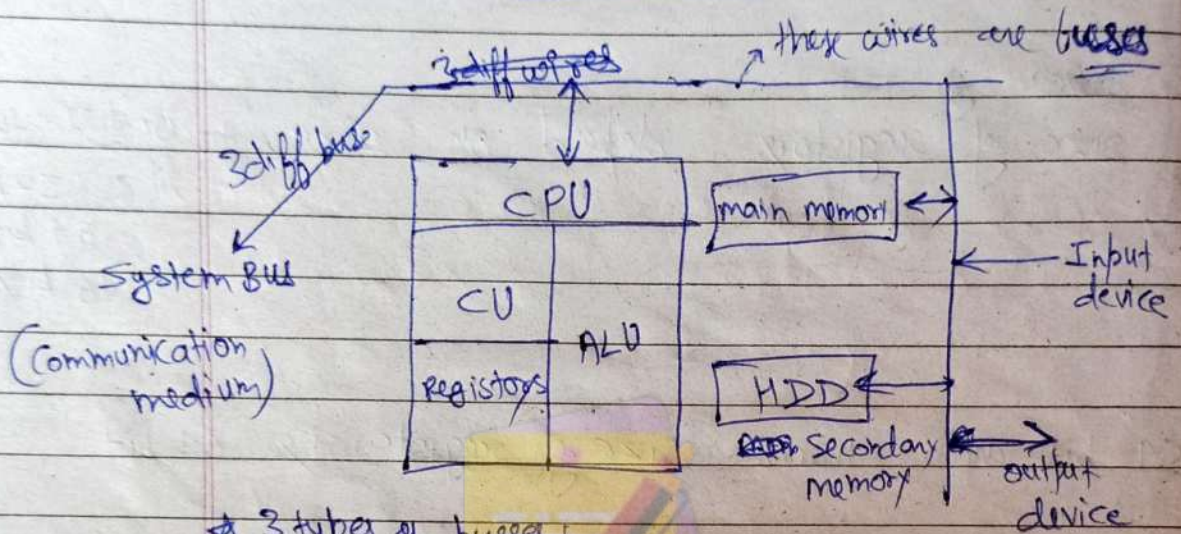 these wires are busses
3 diff wires
3 diff bus
System Bus
(Communication medium)
CPU
CU
ALU
Registors
main memory
Input
device
HDD
Secondary
memory
output
device
3 types of busses :